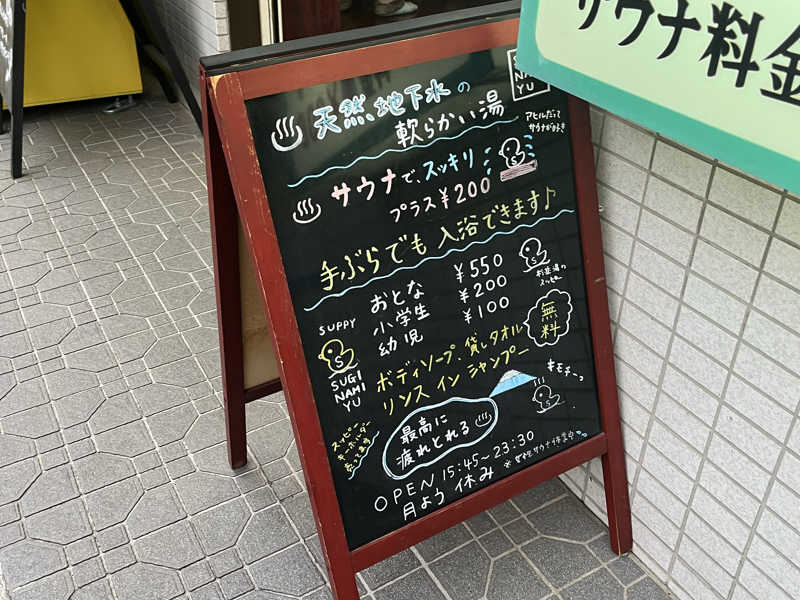 サウナ料金
天然地下水の
軟らかい湯
NA
YU
アヒルだって
サウナが好き
サウナで、スッキリ
プラス¥200
手ぶらでも入浴できます♪
おとな ¥550
小学生 ¥200
幼児 ¥100
杉並湯の
スッピー
SUPPY
SUGI
NAMI
YU
ボディソープ・貸しタオル
リンスインシャンプー
無料
キモチーっ
スッピー
キーホルダー
売ってます
最高に
疲れとれる
OPEN 15:45～23:30
月よう休み